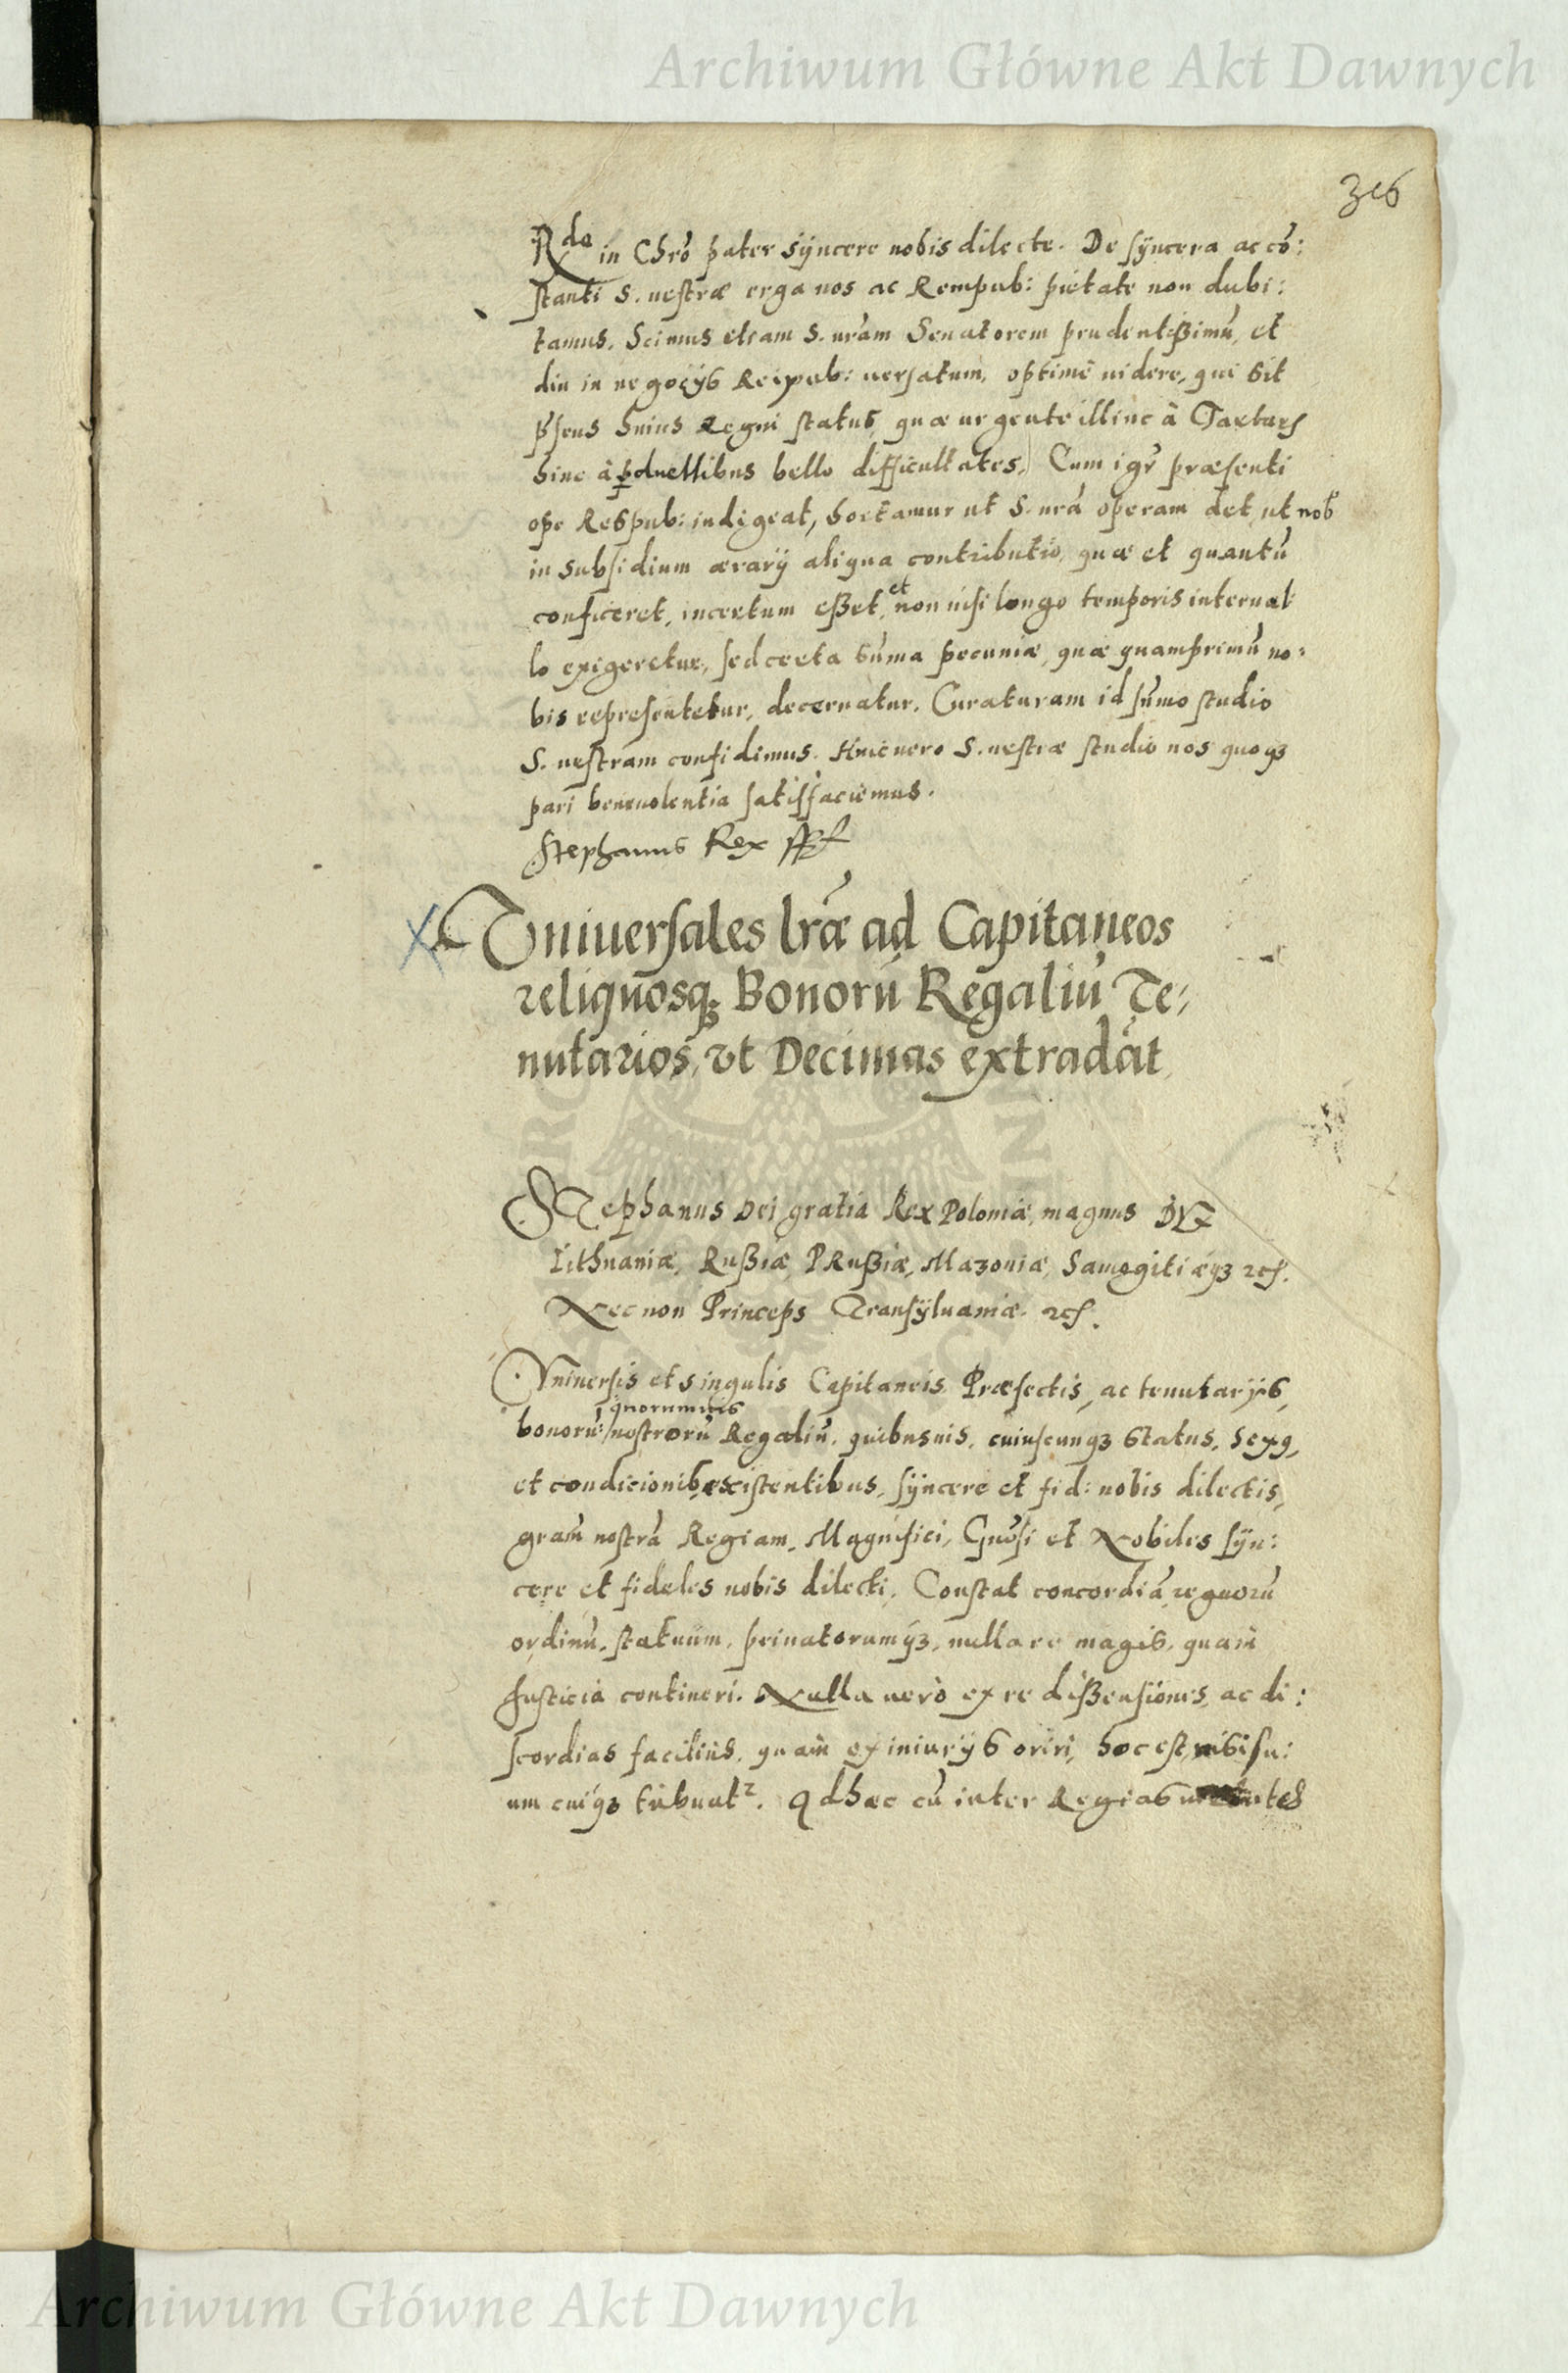 Archiwum Główne Akt Dawnych
316
Rde in Chrō pater syncere nobis dilecte. De syncera ac cō:
stanti S. uestræ erga nos ac Rempub: pietate non dubi:
tamus. Scimus etiam S. uram Senatorem prudentißimū, et
diu in negocys Reipub: uersatum, optimè uidere, qui sit
p̄sens huius Regni status, quæ urgente illinc à Tartars
hinc à p̱duellibus bello difficultates, Cum igr̄ præsenti
ope Respub: indigeat, hortamur ut S. urā operam det, ut nob
in subsidium ærarÿ aliqua contributio, quæ et quantū
conficeret, incertum eßet, et non nisi longo temporis interual
lo exigeretur, sed certa sūma pecuniæ, quæ quamprimū no:
bis representetur, decernatur. Curaturam id sūmo studio
S. uestram confidimus. Huic uero S. uestræ studio nos quoqз
pari beneuolentia satisfaciemus.
Stephanus Rex sspt
Vniuersales lr̄æ ad Capitaneos
reliquosqз Bonorū Regaliū Te:
nutarios, vt Decimas extradāt
STephanus Dei gratia Rex Poloniæ, magnus DVX
Lithuaniæ, Rußiæ, PRußiæ, Mazouiæ, Samogitiæqз etc.
Necnon Princeps Transÿluaniæ. etc.
Vniuersis et singulis Capitaneis Præfectis, ac tenutarÿs,
quorumuis
bonorū nostrorū Regaliū, quibusuis, cuiuscunqз status, sexq,
et condicionib, existentibus, sÿncere et fid: nobis dilectis,
gram̄ nostrā Regiam. Magnifici, Gnōsi et Nobiles sÿn:
cere et fideles nobis dilecti. Constat concordiā, regnorū
ordinū, statuum, priuatorumqз, nulla re magis, quam
Justicia contineri. Nulla uerò ex re dißensiones, ac di:
scordias facilius, quàm ex iniurÿs oriri, hoc est, nisi su:
um cuiqз tribuatr. Qd hæc cū inter Regias
Archiwum Główne Akt Dawnych